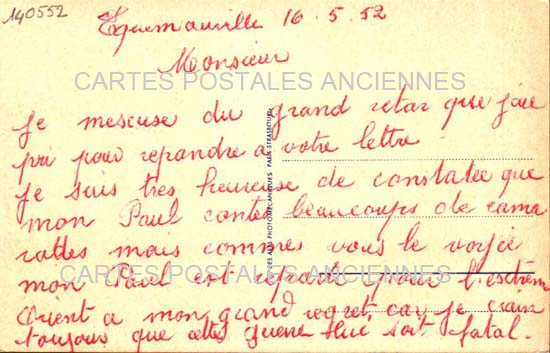 140552
Equemauville 16.5.52
Monsieur
CARTES POSTALES ANCIENNES
Je mescuse du grand retar que j'aie
pri pour repandre a votre lettre.
Je suis tres heureuse de constatee que
mon Paul contes beaucoups de cama
rattes mais commes vous le voyée
mon Paul est repartie pour l'extrem
CARTES POSTALES ANCIENNES
Orient a mon grand regret, car je crain
toujour que cettes guerre lui soit fatal.
DES ARTS PHOTOMECANIQUES PARIS-STRASBOURG